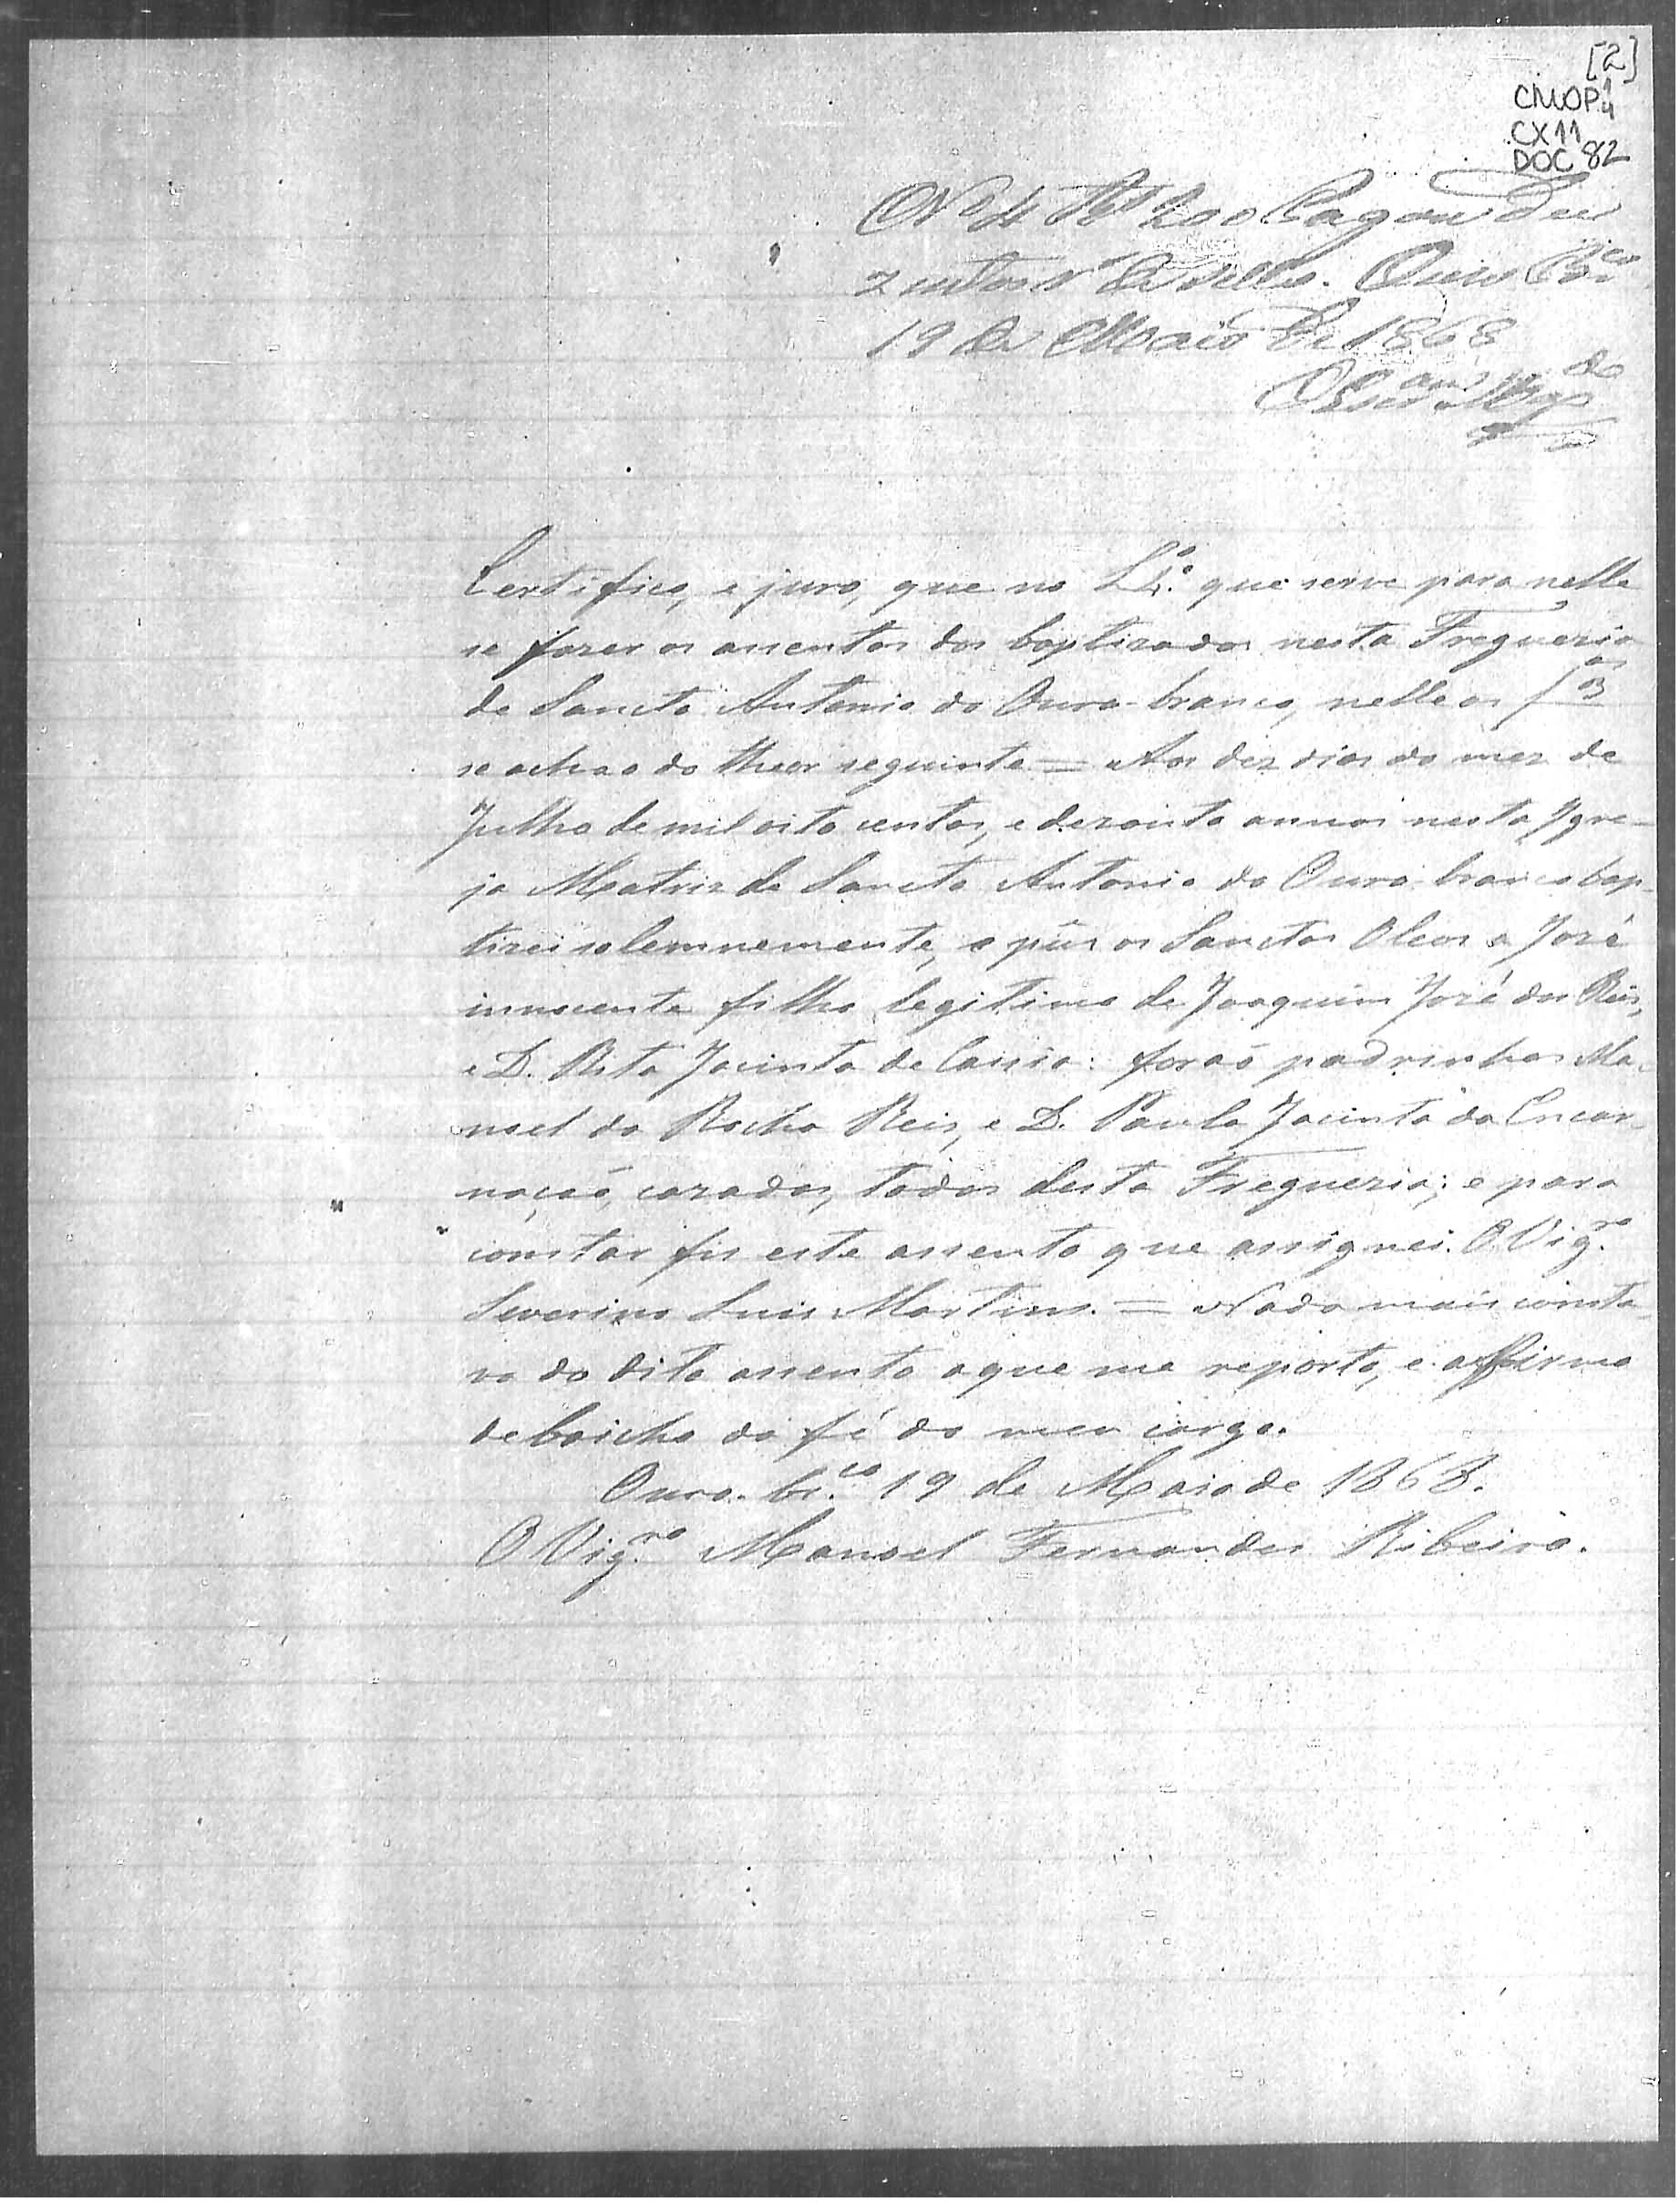 [2]
CMOP 1 4
CX11
DOC 82
Nº 4 Rs 200 Pagou du
zentos rs de sello. Ouro Bcº
19 de Maio de 1868
Certifico, e juro, que no Lº que serve para nelle
se fazer os assentos dos baptizados nesta Freguezia
de Sancto Antonio do Ouro-branco, nelle as f
se achao do theor seguinte = Aos dez dias do mez de
Julho de mil oito centos, e dezoito annos nesta Igre-
ja Matriz de Sancto Antonio do Ouro-branco bap-
tizei solemnemente, e pûs os Sanctos Oleos a José
innocente filho legitimo de Joaquim José dos Reis,
e D. Rita Jacinta de Cassia: foraõ padrinhos Ma-
noel da Rocha Reis, e D. Paula Jacinta da Encar-
naçaõ, cazados, todos desta Freguezia; e para
constar fis este assento que assignei. O Vigrº
Severino Luis Martins. = Nada mais consta-
va do dito assento a que me reporto, e affirmo
debaicho da fé do meu cargo.
Ouro-br.co 19 de Maio de 1868.
O Vig.ro Manoel Fernandes Ribeiro.